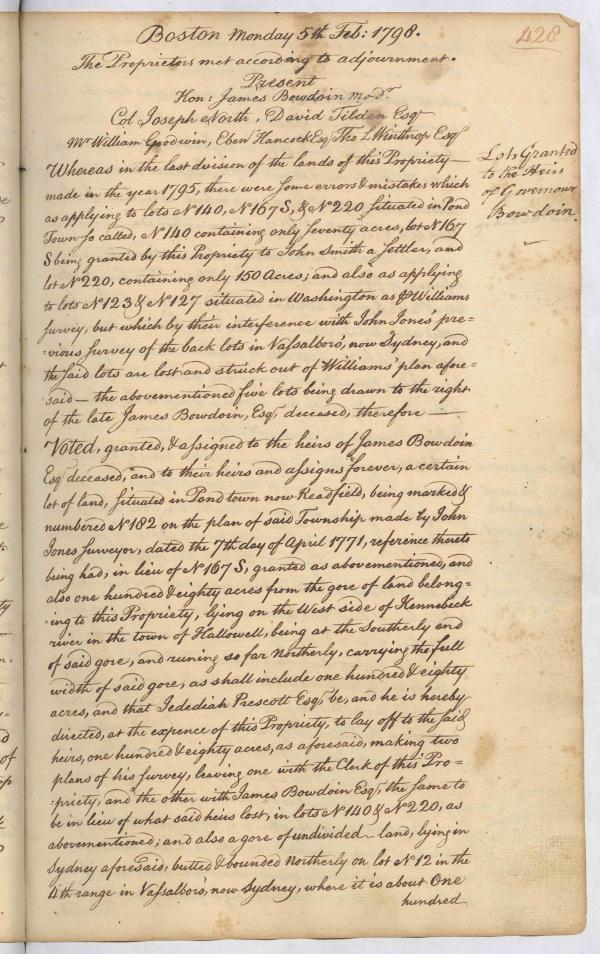 428
Boston Monday 5th Feb: 1798.
The Proprietors met according to adjournment.
Present
Hon: James Bowdoin Modr.
Col Joseph North, David Tilden Esqr
Mr William Goodwin, Eben Hancock Esq Tho L Winthrop Esqr
Lots Granted
to the Heirs
of Governour
Bowdoin.
Whereas in the last division of the lands of this Propriety —
made in the year 1795, there were some errors & mistakes which
as applying to lots No 140, No 167 S, & No 220 situated in Pond
Town so called, No 140 containing only seventy acres, lot No 167
S being granted by this Propriety to John Smith a settler, and
lot No 220, containing only 150 Acres; and also as applying
to lots No 123 & No 127 situated in Washington as Williams
survey, but which by their interference with John Jones' pre=
=vious survey of the back lots in Vassalboro', now Sydney, and
the said lots are lost and struck out of Williams' plan afore=
said — the abovementioned five lots being drawn to the right
of the late James Bowdoin, Esqr, deceased, therefore —
Voted, granted, & assigned to the heirs of James Bowdoin
Esqr deceased, and to their heirs and assigns forever, a certain
lot of land, situated in Pond town now Readfield, being marked &
numbered No 182 on the plan of said Township made by John
Jones surveyor, dated the 7th day of April 1771, reference thereto
being had, in lieu of No 167 S, granted as abovementioned, and
also one hundred & eighty acres from the gore of land belong=
=ing to this Propriety, lying on the West side of Kennebeck
river in the town of Hallowell, being at the Southerly end
of said gore, and runing so far Northerly, carrying the full
width of said gore, as shall include one hundred & eighty
acres, and that Jedediah Prescott Esqr, be, and he is hereby
directed, at the expence of this Propriety, to lay off to the said
heirs, one hundred & eighty acres, as aforesaid, making two
plans of his survey, leaving one with the Clerk of this Pro=
=priety, and the other with James Bowdoin Esqr, the same to
be in lieu of what said heirs lost, in lots No 140 & No 220, as
abovementioned; and also a gore of undivided land, lying in
Sydney aforesaid, butted & bounded Northerly on lot No 12 in the
4th range in Vassalboro', now Sydney, where it is about One
hundred